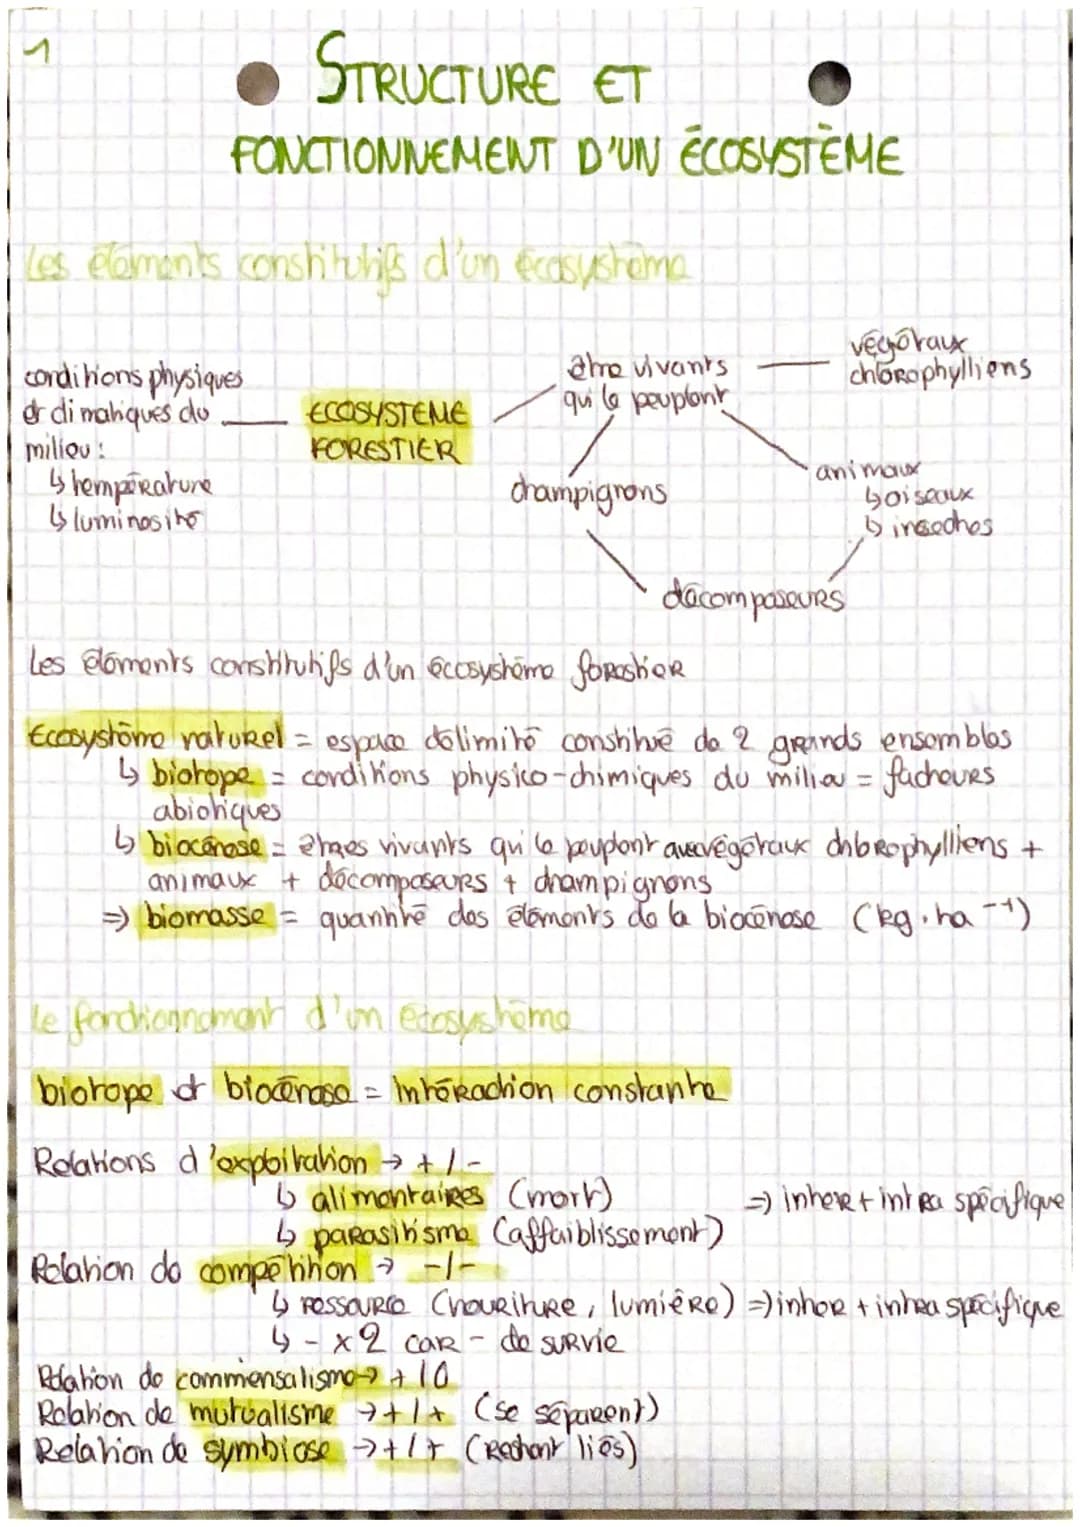 1
STRUCTURE ET
FONCTIONNEMENT D'UN ÉCOSYSTÈME
Les éléments constitutifs d'un écosystème
conditions physiques
et climatiques du
milieu :
↳ température
↳ luminosité
ECOSYSTEME
FORESTIER
être vivants
qui le peuplent
végétaux
chlorophylliens
champignons
animaux
↳ oiseaux
↳ insectes
décomposeurs
Les éléments constitutifs d'un écosystème forestier
Ecosystème naturel = espace délimité constitué de 2 grands ensembles
↳ biotope = conditions physico-chimiques du milieu = facteurs
abiotiques
↳ biocénose = êtres vivants qui le peuplent avec végétaux chlorophylliens +
animaux + décomposeurs + champignons
=> biomasse = quantité des éléments de la biocénose (kg.ha⁻¹)
Le fonctionnement d'un écosystème
biotope et biocénose = Intéraction constante
Relations d'exploitation → + / -
↳ alimentaires (mort) => inter + intra spécifique
↳ parasitisme (affaiblissement)
Relation de compétition → -/-
↳ ressource (nouriture, lumière) => inter + intra spécifique
↳ - x2 car - de survie
Relation de commensalisme → + / 0
Relation de mutualisme → + / + (se séparent)
Relation de symbiose → + / + (restent liés)